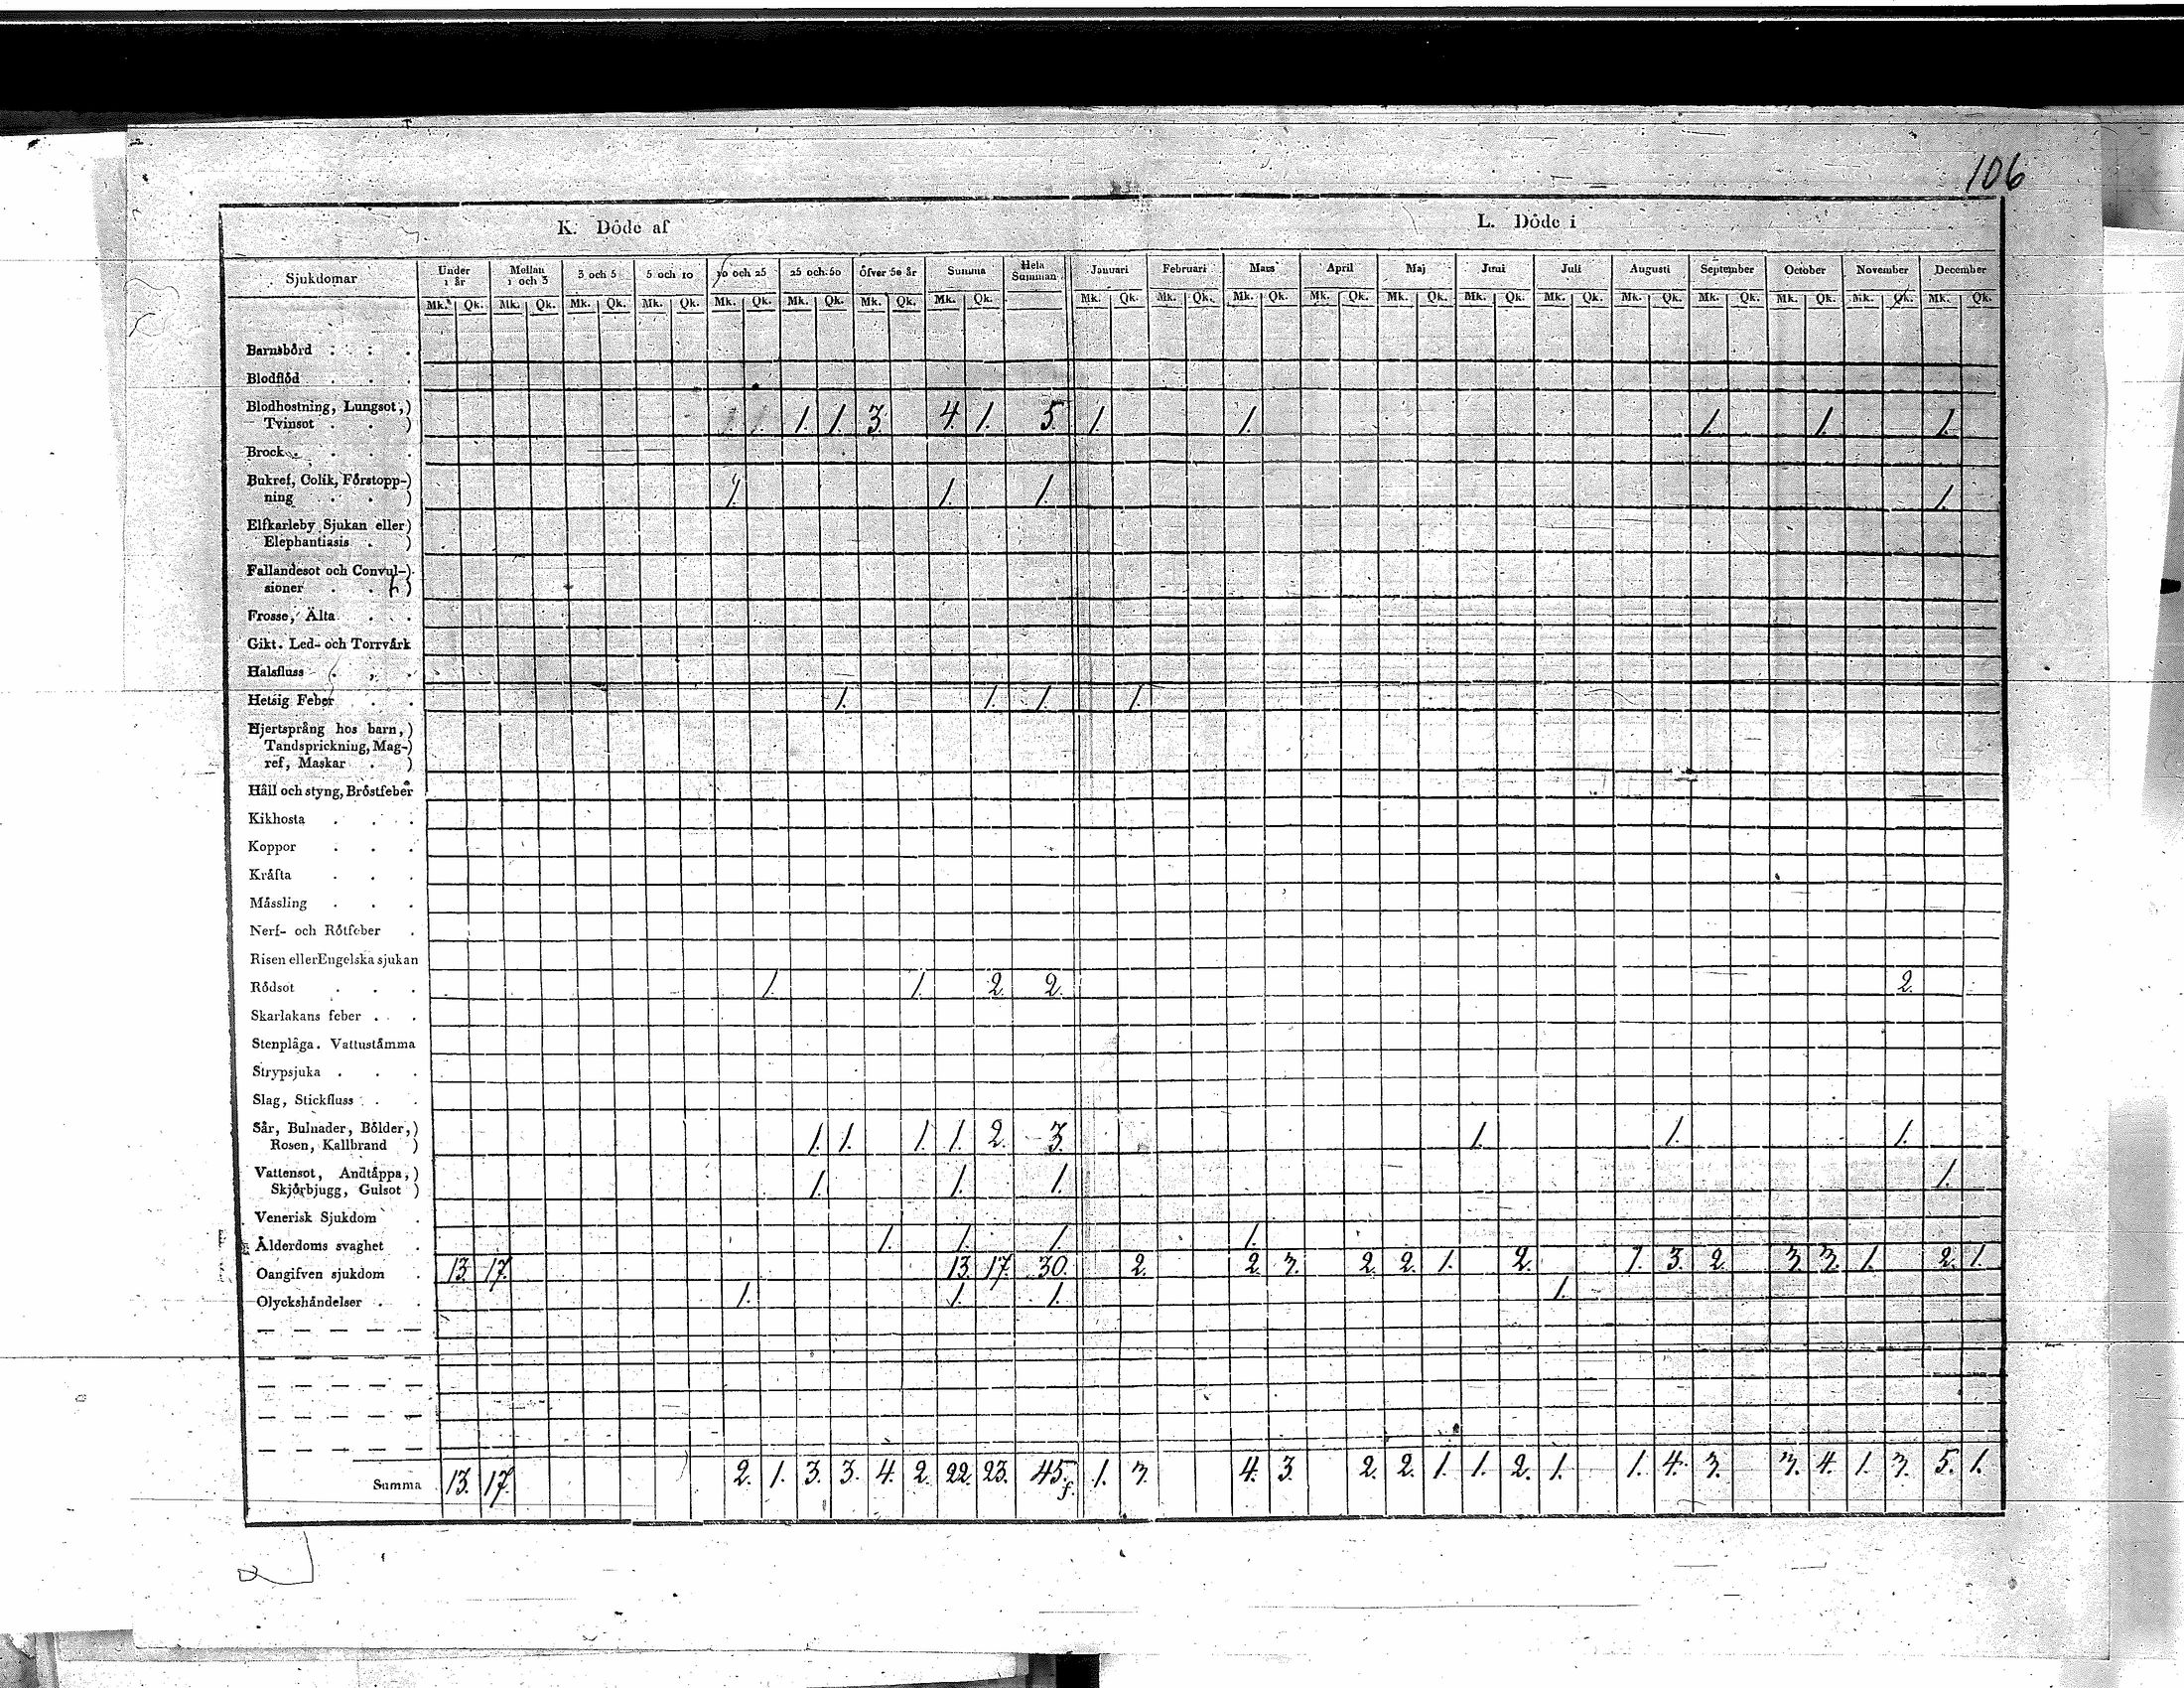 106
K. Döde af L. Döde i
Sjukdomar Under 1 år Mellan 1 och 3 3 och 5 5 och 10 10 och 25 25 och 50 Öfver 50 år Summa Hela Summan Januari Februari Mars April Maj Juni Juli Augusti September October November December
Mk. Qk. Mk. Qk. Mk. Qk. Mk. Qk. Mk. Qk. Mk. Qk. Mk. Qk. Mk. Qk. Mk. Qk. Mk. Qk. Mk. Qk. Mk. Qk. Mk. Qk. Mk. Qk. Mk. Qk. Mk. Qk. Mk. Qk. Mk. Qk. Mk. Qk. Mk. Qk.
Barnsbörd . . .
Blodflöd . . .
Blodhostning, Lungsot,)
Tvinsot . . ) 1. 1. 3 4. 1. 5. 1. 1. 1. 1. 1.
Brock . . . .
Bukref, Colik, Förstopp-)
ning . . ) 1. 1. 1. 1.
Elfkarleby Sjukan eller)
Elephantiasis . )
Fallandesot och Convul-)
sioner . . )
Frosse, Älta . . .
Gikt. Led- och Torrvärk
Halsfluss . , .
Hetsig Feber . . 1. 1. 1. 1.
Hjertsprång hos barn,)
Tandsprickning, Mag-)
ref, Maskar . )
Håll och styng, Bröstfeber
Kikhosta . . .
Koppor . . .
Kräfta . . .
Mässling . . .
Nerf- och Rötfeber .
Risen eller Engelska sjukan
Rödsot . . . 1. 1. 2. 2. 2.
Skarlakans feber . .
Stenplåga. Vattustämma
Strypsjuka . . .
Slag, Stickfluss . .
Sår, Bulnader, Bölder,)
Rosen, Kallbrand ) 1. 1. 1. 1. 2. 3. 1. 1. 1.
Vattensot, Andtäppa,)
Skjörbjugg, Gulsot ) 1. 1. 1. 1.
Venerisk Sjukdom .
Ålderdoms svaghet . 1. 1. 1. 1.
Oangifven sjukdom . 13. 17. 13. 17. 30. 2. 2. 3. 2. 2. 1. 2. 1. 3. 2. 3. 3. 1. 2. 1.
Olyckshändelser . . 1. 1. 1. 1.
Summa 13. 17. 2. 1. 3. 3. 4. 2. 22. 23. 45. 1. 3. 4. 3. 2. 2. 1. 1. 2. 1. 1. 4. 3. 3. 4. 1. 3. 5. 1.